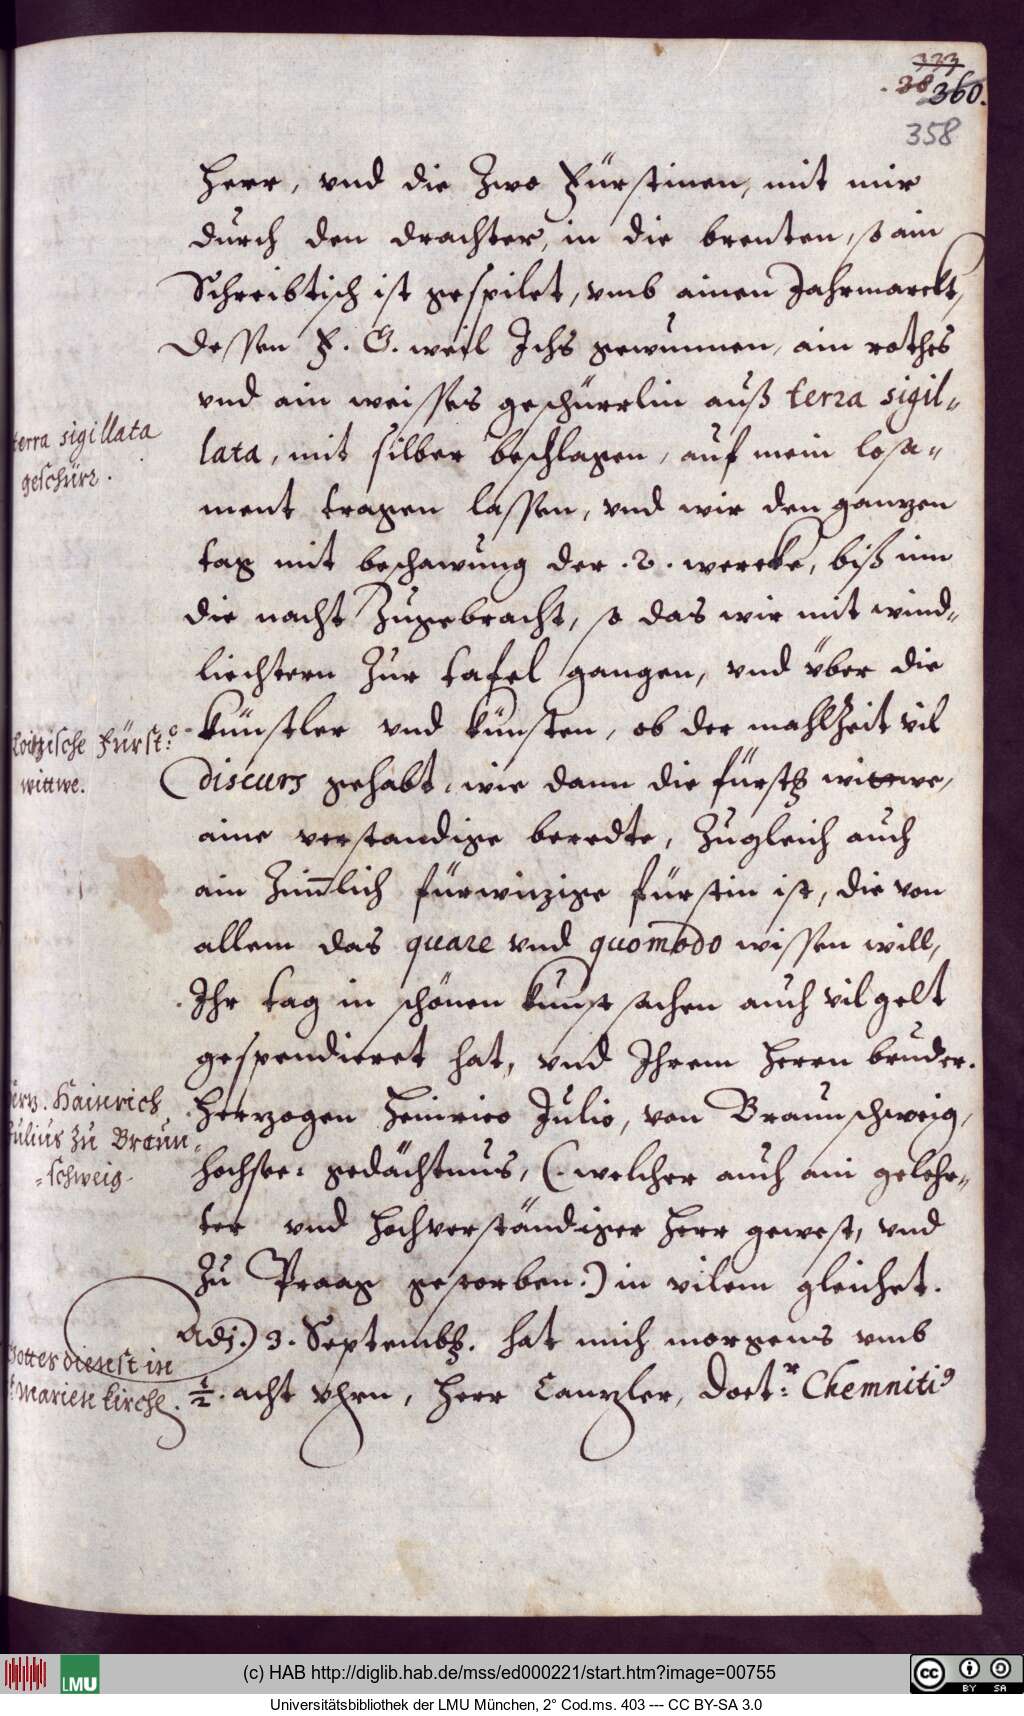 333
38
360.
358
Herr, vnd die Zwo Fürstinen, mit mir
durch den drachter, in die brenten, so ain
Schreibtisch ist gespilet, vmb ainen Jahrmarckt,
dessen F. G. weil Ichs gewunnen, ain rothes
vnd ain weisses geschürrlin auß terra sigil-
lata, mit silber beschlagen, auf mein losa-
ment tragen lassen, vnd wir den ganzen
tag mit beschawung der .2. wercke, biß inn
die nacht Zugebracht, so das wir mit wind-
liechtern Zur tafel gangen, vnd über die
künstler vnd künsten, ob der mahlZeit vil
discurs gehabt, wie dann die fürstl: wittwe,
aine verstandige beredte, Zugleich auch
ain Zimlich fürwizige fürstin ist, die von
allem das quare vnd quomodo wissen will,
Ihr tag in schönen kunstsachen auch vil gelt
gespendieret hat, vnd Ihrem Herrn bruder.
Herzogen Heinrico Julio, von Braunschweig,
hochsee: gedächtnus, (welcher auch ain gelehr-
ter vnd hochverständiger Herr gewest, vnd
Zu Praag gestorben.) in vilem gleichet.
Adj.) 3. Septemb: hat mich morgens vmb
1/2. acht vhrn, Herr Canzler, Doct:r Chemniti9
terra sigillata
geschürr.
Fürst:e
wittwe.
Hainrich
Julius Zu Braun-
-schweig.
Gottesdienst in
marien kirche.
(c) HAB http://diglib.hab.de/mss/ed000221/start.htm?image=00755
LMU
cc BY SA
Universitätsbibliothek der LMU München, 2° Cod.ms. 403 --- CC BY-SA 3.0